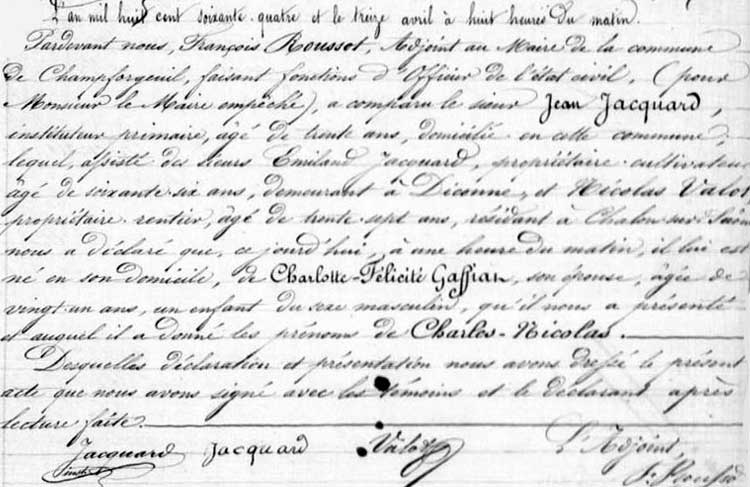 L'an mil huit cent soixante-quatre et le treize avril à huit heures du matin.
Pardevant nous, François Roussot, Adjoint au Maire de la commune
de Champforgeuil, faisant fonctions d'Officier de l'état civil, (pour
Monsieur le Maire empêché), a comparu le sieur Jean Jacquard,
instituteur primaire, âgé de trente ans, domicilié en cette commune,
lequel, assisté des sieurs Emiland Jacquard, propriétaire-cultivateur
âgé de soixante-six ans, demeurant à Diconne, et Nicolas Valot,
propriétaire-rentier, âgé de trente-sept ans, résidant à Chalon-sur-Saône
nous a déclaré que, ce jourd'hui, à une heure du matin, il lui est
né en son domicile, de Charlotte-Félicité, son épouse, âgée de
vingt-un ans, un enfant du sexe masculin, qu'il nous a présenté
et auquel il a donné les prénoms de Charles-Nicolas.
Desquelles déclaration et présentation nous avons dressé le présent
acte que nous avons signé avec les témoins et le déclarant après
lecture faite.
Jacquard Jacquard Valot L'Adjoint,
F. Roussot